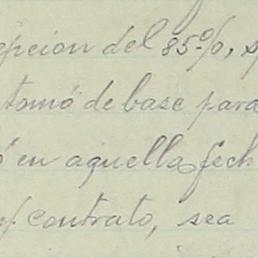 epcion del 85%, s
tomó de base para
ó en aquella fech
contrato, sea